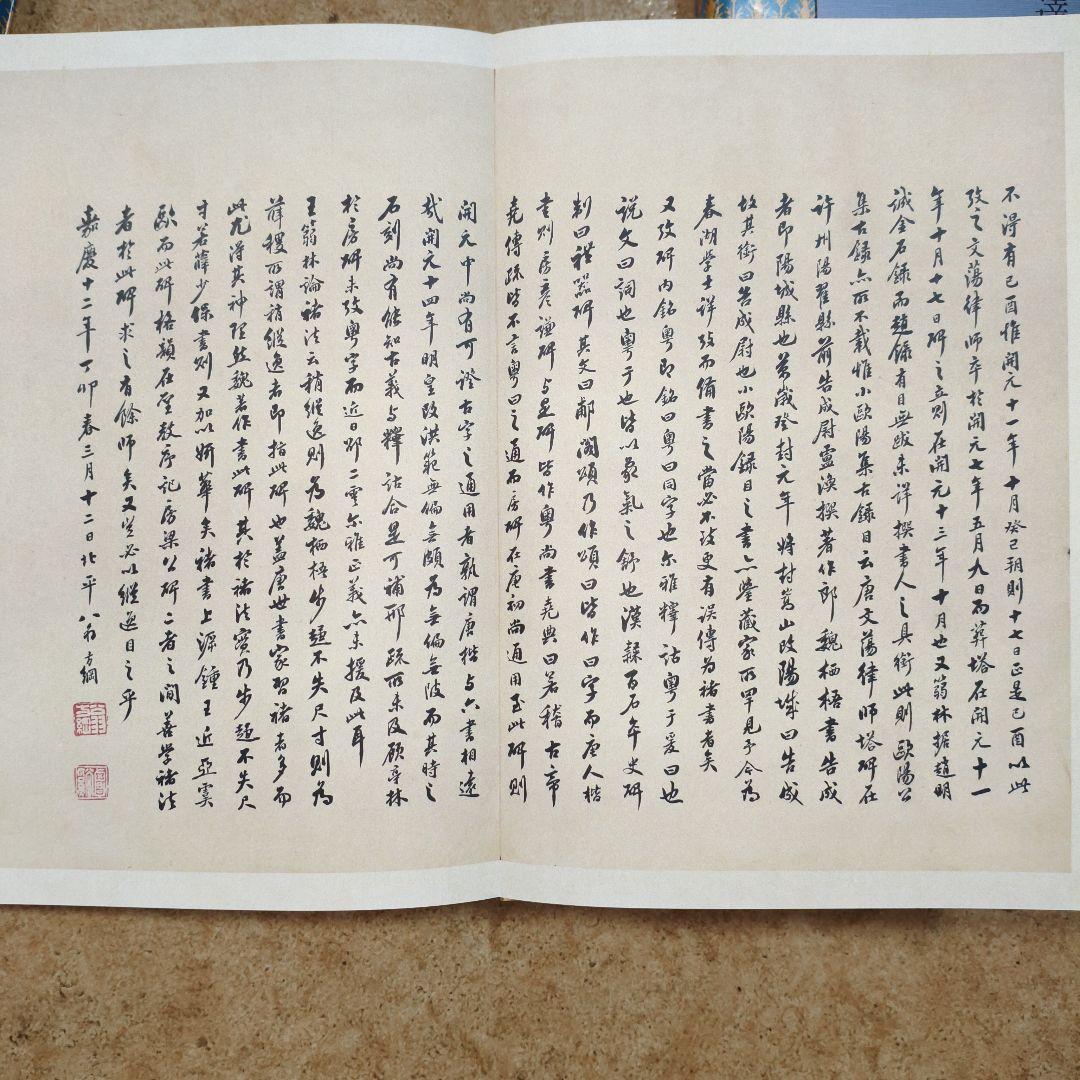 不得有己酉惟開元十一年十月癸巳朔則十七日正是己酉以此
攷之文蕩律師卒於開元七年五月九日而葬塔在開元十一
年十月十七日碑之立則在開元十三年十月也又翁林據趙明
誠金石錄而趙錄有目無跋未詳撰書人之具銜此則歐陽公
集古錄亦所不載惟小歐陽集古錄目云唐文蕩律師塔碑在
許州陽翟縣前告成尉盧渙撰著作郎魏栖梧書告成
者即陽城縣也萬歲登封元年將封嵩山改陽城曰告成
故其銜曰告成尉也小歐陽錄目之書亦鑒藏家所罕見予今為
春湖學士詳攷而備書之當必不致更有誤傳為褚書者矣
又攷碑內銘粵即銘曰粵曰同字也尔雅釋詁粵于爰曰也
說文曰詞也粵于也皆以象氣之舒也漢隸百石卒史碑
制曰禮器碑其文曰郙閣頌乃作頌曰皆作曰字而唐人楷
書則房彥謙碑与是碑皆作粵尚書堯典曰若稽古帝
堯傳疏皆不言粵曰之通而房碑在唐初尚通用至此碑則
開元中尚有可證古字之通用者孰謂唐楷与六書相遠
哉開元十四年明皇改洪範無偏無頗為無偏無陂而其時之
石刻尚有能知古義与釋詁合是可補邢疏所未及顧亭林
於房碑未攷粵字而近日邵二雲尔雅正義亦未援及此耳
王翁林論褚法云稍縱逸則為魏栖梧步趨不失尺寸則為
薛稷所謂稍縱逸者即指此碑也蓋唐世書家習褚者多而
此尤得其神理然魏若作書此碑其於褚法實乃步趨不失尺
寸若薛少保書則又加以妍華矣褚書上源鍾王近亞虞
歐而此碑格韻在聖教序記房梁公碑二者之間善學褚法
者於此碑求之有餘師矣又豈必以縱逸目之乎
嘉慶十二年丁卯春三月十二日北平翁方綱